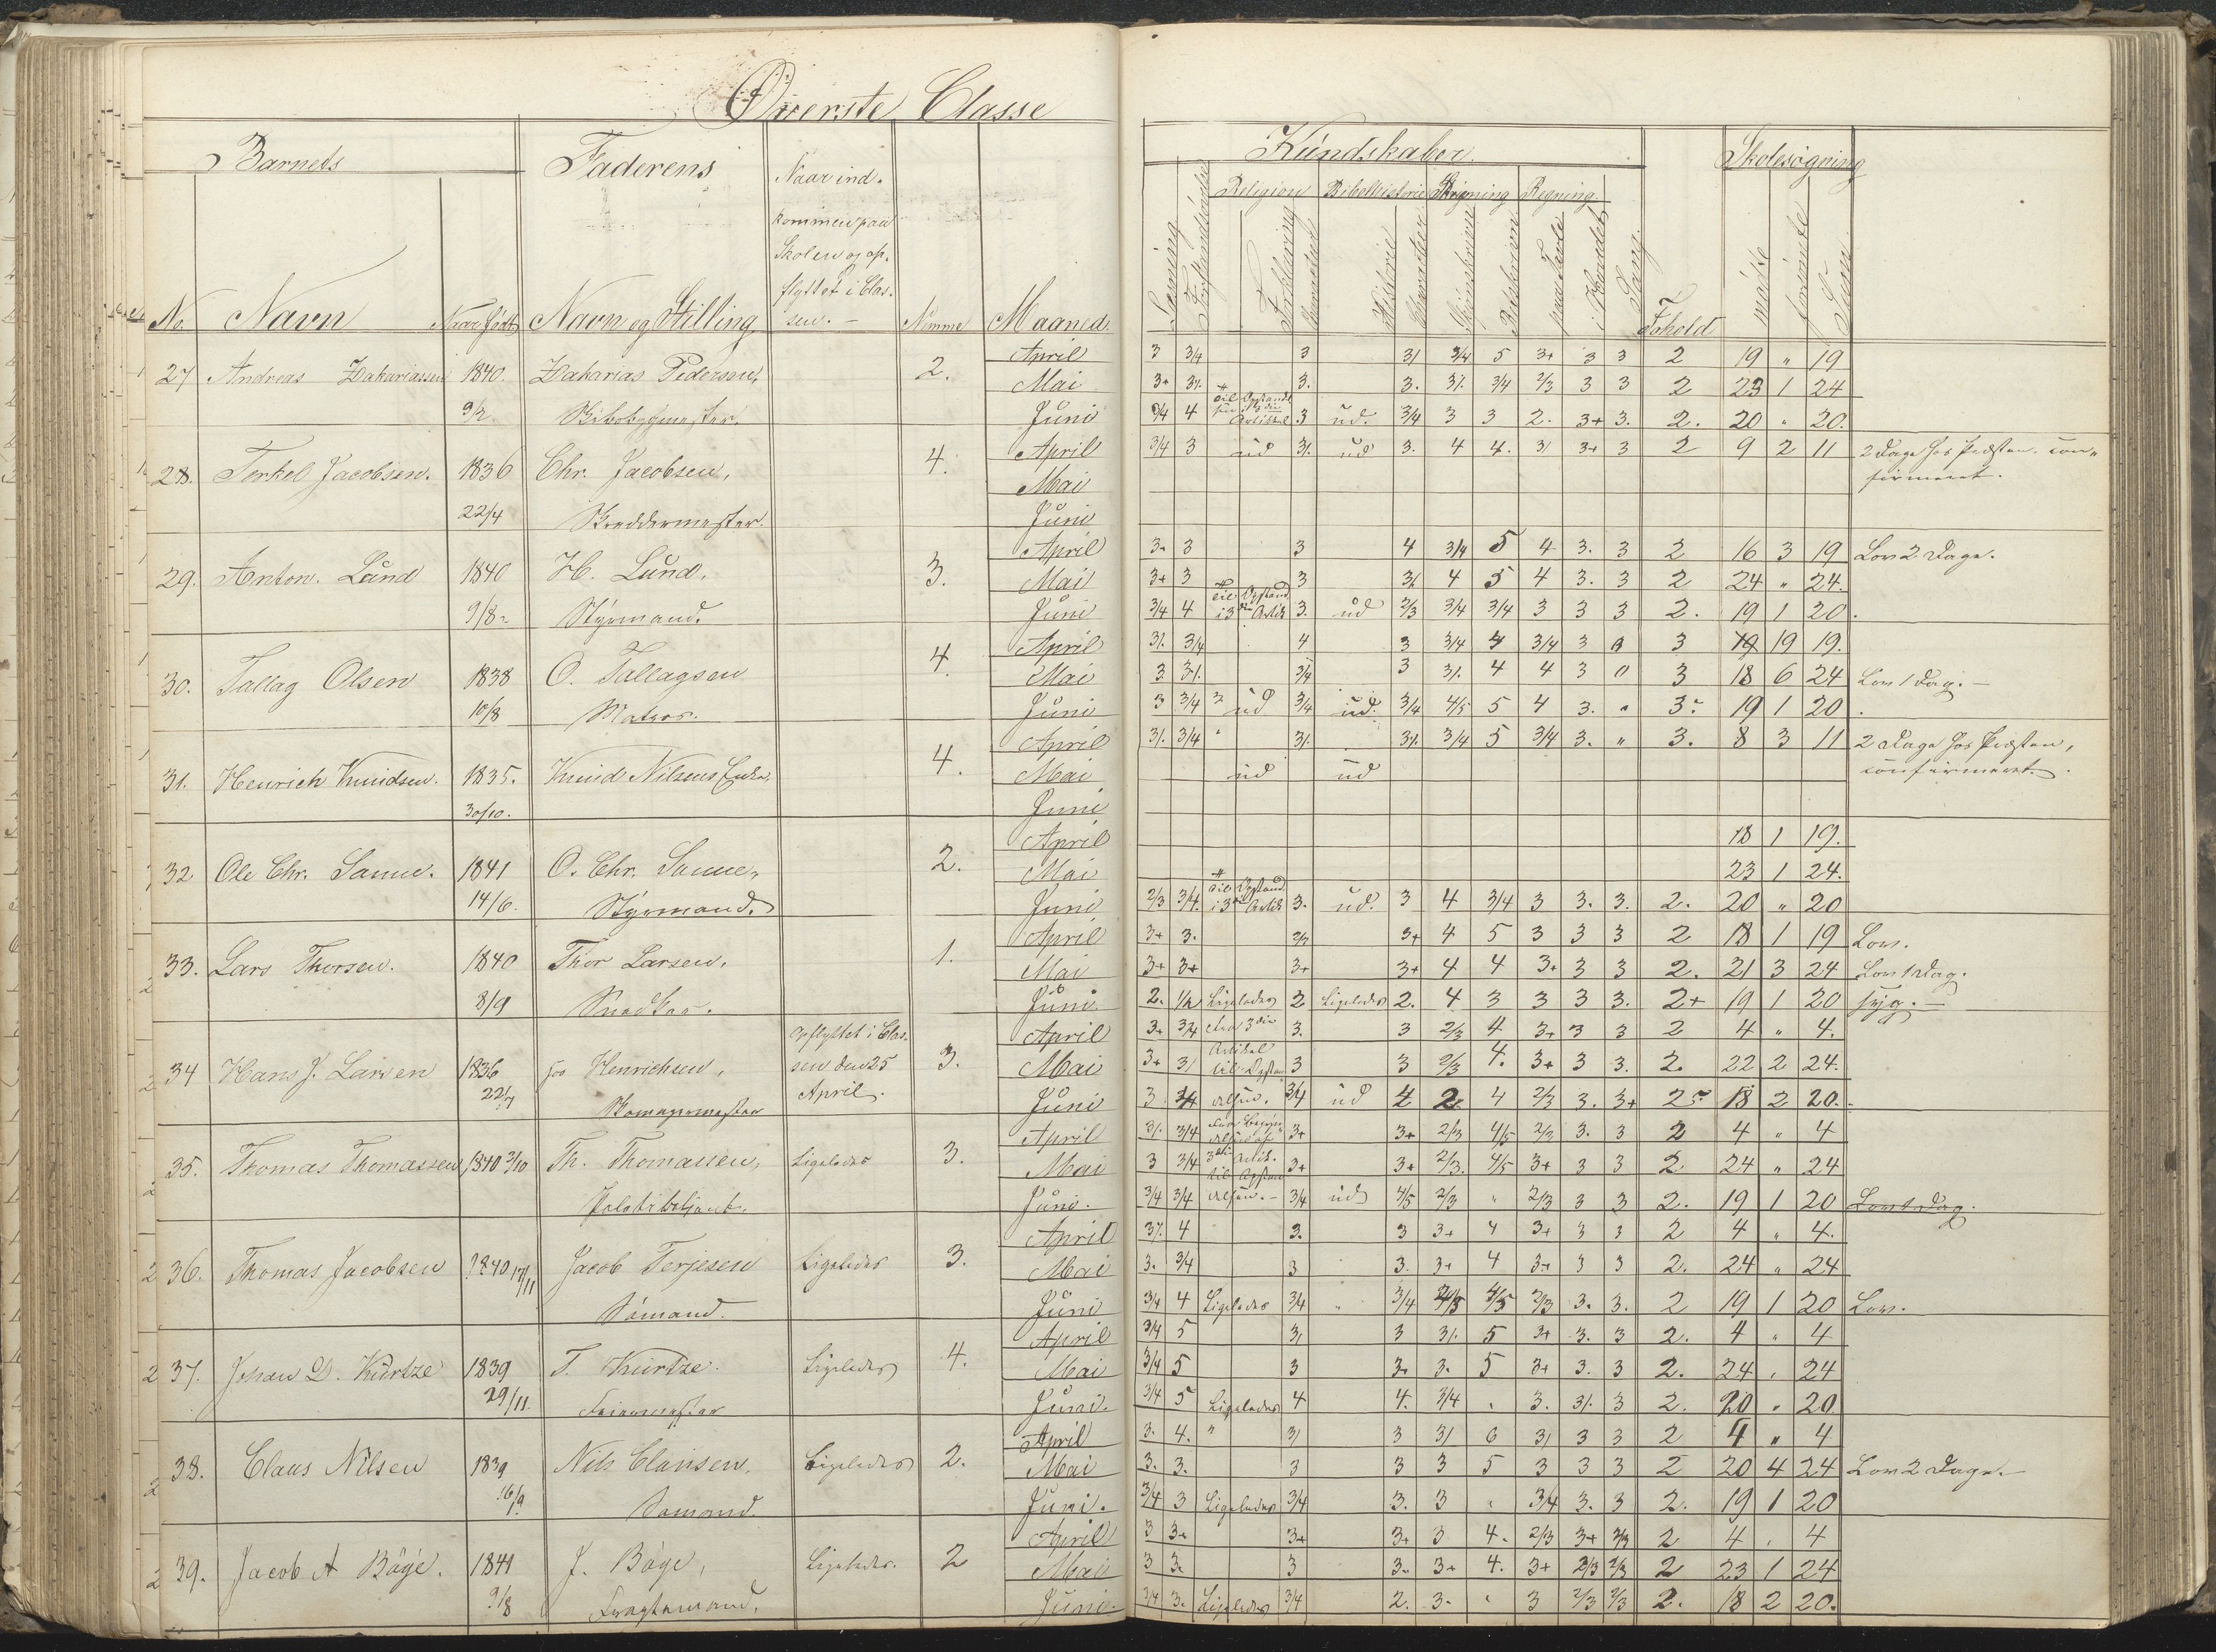 Øverste Classe
Barnets Faderens Naar ind-
kommen paa
Skolen og op-
flyttet i Clas-
sen.
No. Navn Naar født Navn og Stilling Maaned.
Kundskaber Skolesøgning
Religion Bibelhistorie Skrivning Regning
Læsning Forklaring Historie paa Tavle i Hovedet Sang. Fohold mødte forsømte Sum
27 Andreas Zakariassen 1840. Zakarias Pedersen, 2. April 3 3/4 3 3/ 3/4 5 3+ 3 3 2 19 " 19
Mai 3+ 3/. 3. 3. 3/. 3/4 2/3 3 3 2 23 1 24
9/2 Juni 3/4 4 3 ud. 3/4 3 3 2. 3+ 3. 2. 20 " 20.
28. Terkel Jacobsen. 1836 Chr. Jacobsen, 4. April 3/4 3 ud 3/. ud 3. 4 4. 3/ 3+ 3 2 9 2 11 2 Dage hos Præsten. con-
Mai firmeret.
22/4 Skreddermester. Juni
29. Anton. Lund 1840 H. Lund. 3. April 3+ 3 3 4 3/4 5 4 3. 3 2 16 3 19 Lov 2 Dage.
Mai 3+ 3 3 3/. 4 5 4 3. 3 2 24 " 24.
9/8 Styrmand. Juni 3/4 4 til Opstand i 3die Artik 3. ud 2/3 3/4 3/4 3 3 3 2. 19 1 20.
30. Tallag Olsen 1838 O. Tallagsen 4. April 3/. 3/4 4 3 3/4 4 3/4 3 0 3 19 19.
Mai 3 3/. 3/4 3 3/. 4 4 3 0 3 18 6 24 Lov 1 Dag.
10/8 Matros. Juni 3 3/4 ud 3/4 ud. 3/4 4/5 5 4 3. " 3. 19 1 20
31. Henrich Knudsen. 1835. Knud Nilsens Enke, 4. April 3/. 3/4 3/. 3/. 3/4 5 3/4 3. " 3. 8 3 11 2 Dage hos Præsten,
Mai ud ud confirmeret.
30/10. Juni
32 Ole Chr. Sanne. 1841 O. Chr. Sanne, 2. April 18 1 19.
Mai 23 1 24.
14/6. Styrmand. Juni 2/3 3/4. til Opstand i 3die Artik 3. ud. 3 4 3/4 3 3. 3. 2. 20 " 20
33. Lars Thorsen. 1840 Thor Larsen. 1. April 3+ 3. 2/3 3+ 4 5 3 3 3 2 18 1 19 Lov.
Mai 3+ 3+ 3+ 3+ 4 4 3+ 3 3 2. 21 3 24 Lov 1 Dag.
8/9 Snedker. Juni. 2. 1/2 Ligeledes 2 Ligeledes 2. 4 3 3 3 3. 2+ 19 1 20 syg.
34 Hans J. Larsen 1836 Henrichsen, opflyttet i Clas- 3. April 3+ 3/4 3. 3 2/3 4 3+ 3 3 2 4 " 4.
sen den 25 Mai 3+ 3/ 3 3 2/3 4. 3+ 3 3. 2. 22 2 24.
22/7 Skomagermester April. Juni 3 3/4 3/4 ud 4 2 4 2/3 3. 3+ 2 18 2 20.
35. Thomas Thomassen, 1840 3/10 Th. Thomassen, Ligeledes 3. April 3/. 3/4 3+ 3+ 2/3 4/5 2/3 3. 3 2 4 " 4
Mai 3 3/4 3+ 3+ 2/3. 4/5 3+ 3 3 2 24 " 24
Politibetjent. Juni. 3/4 3/4 3/4 ud 4/5 2/3 " 2/3 3 3 2. 19 1 20 Lov 1 Dag.
36. Thomas Jacobsen 1840 17/11 Jacob Terjesen Ligeledes 3. April 3/. 4 3. 3 3+ 4 3+ 3 3 2 4 " 4.
Mai 3. 3/4 3 3. 3+ 4 3+ 3 3 2. 24 " 24
Sømand. Juni 3/4 4 Ligeledes 3/4 " 3/4 4/5 4/5 2/3 3. 3. 2 19 1 20 Lov.
37. Johan D. Kurtze 1839 T. Kurtze. Ligeledes 4. April 3/4 5 3/ 3 3/. 5 3+ 3. 3 2. 4 " 4
Mai 3/4 5 3 3+ 3. 5 3+ 3. 3 2. 24 " 24
29/11. Feiermester Juni. 3/4 5 Ligeledes 4 4. 3/4 " 3. 3/. 3 2. 20 " 20
38. Claus Nilsen 1839 Nils Clausen, Ligeledes 2. April 3. 4. " 3/ 3 3/ 6 3/ 3 3 2 4 " 4
Mai 3. 3. 3 3 3 5 3 3 3 2 20 4 24 Lov 2 Dage.
16/9. Sømand. Juni. 3/4 3 Ligeledes 3/4 3. 3 " 3/4 3. 3 2. 19 1 20
39. Jacob A Bøge. 1841 J. Bøge, Ligeledes. 2 April 3 3+ 3+ 3+ 3 4. 2/3 3+ 2/3 2 4 " 4
Mai 3 3. 3 3. 3+ 4. 3+ 2/3 2/3 2 23 1 24
9/8 Fragtemand. Juni. 3/4 3. Ligeledes 3/4 2. 3. " 3 2/3 2/3 2. 18 2 20.